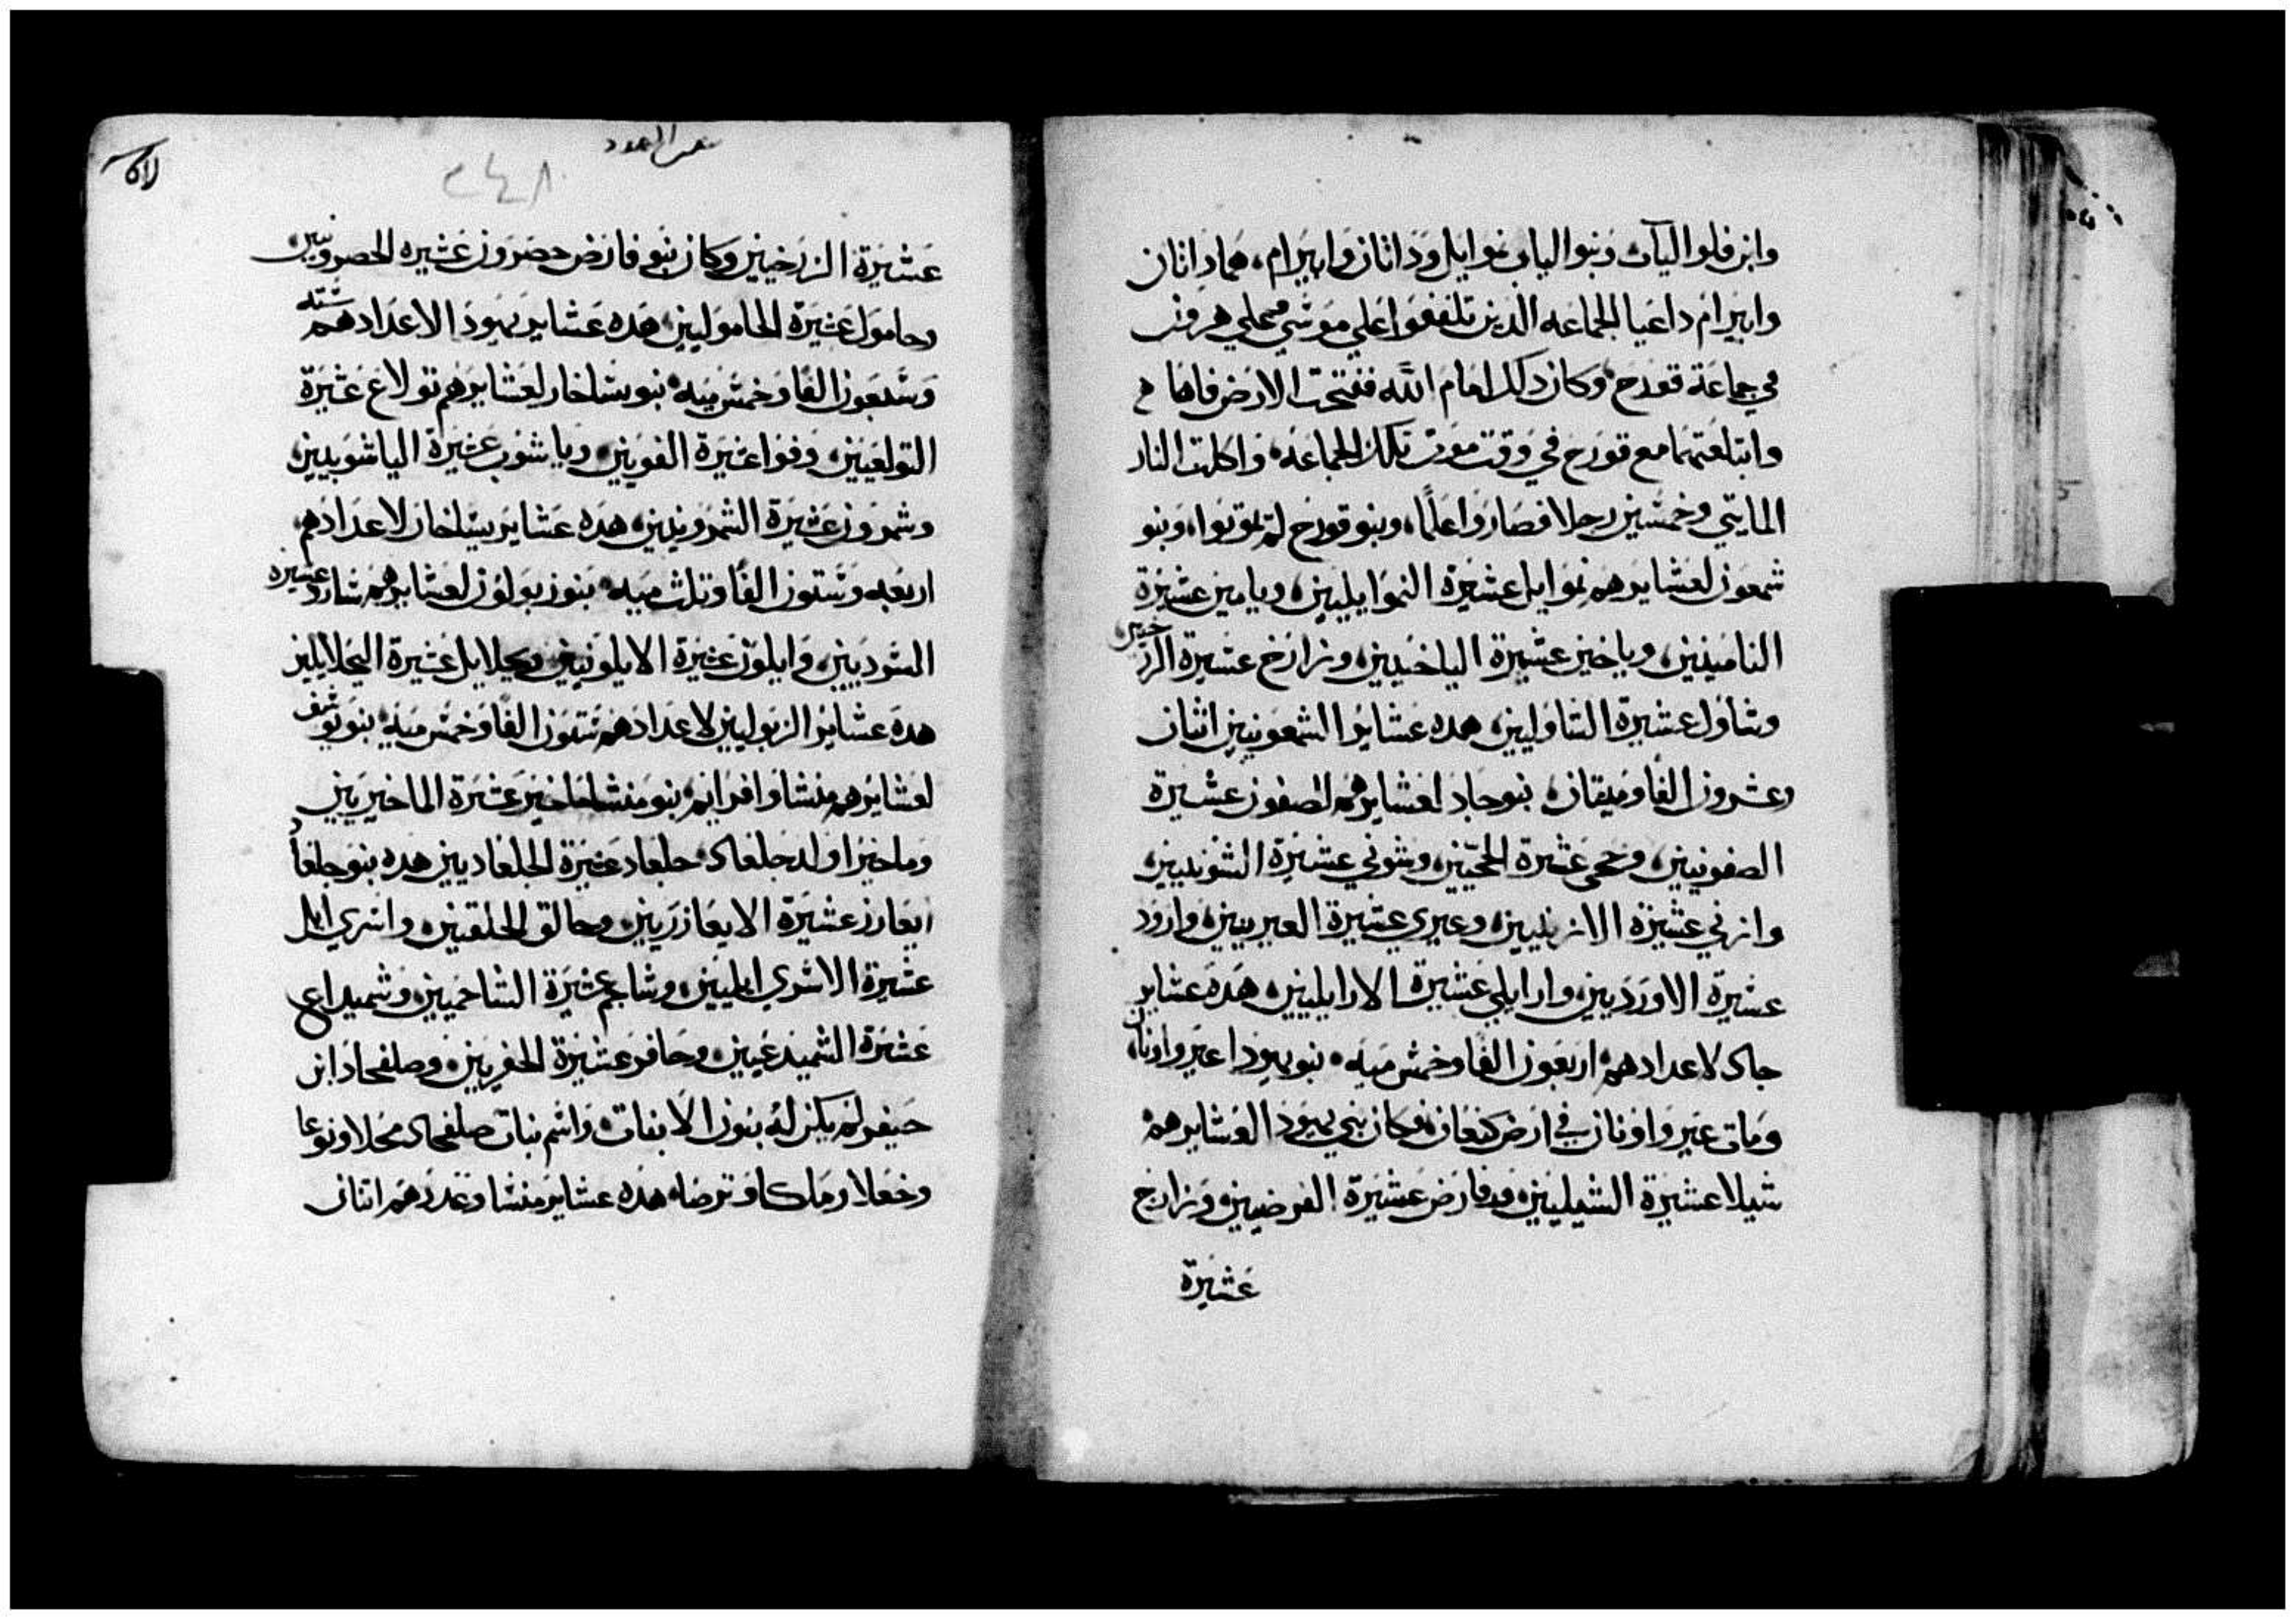 وابن فلوا الياب وبنوا الياب نموايل وداثان وابيرام، هما داثان
وابيرام داعيا الجماعه الذين تلففوا علي موسي وعلي هرون
في جماعة قورح وكان ذلك امام الله ففتحت الارض فاها
وابتلعتهما مع قورح في وقت موت تلك الجماعه، واكلت النار
المايتي وخمسين رجلا فصاروا علما، وبنو قورح لم يموتوا، وبنو
شمعون لعشايرهم نموايل عشيرة النموايليين، ويامين عشيرة
اليامينيين، وياخين عشيرة الياخينيين، وزارخ عشيرة الزرخيين
وشاول عشيرة الشاوليين، هذه عشاير الشمعونيين اثنان
وعشرون الفا وميتان، بنو جاد لعشايرهم لصفون عشيرة
الصفونيين، وحجي عشيرة الحجيين، وشوني عشيرة الشونيين،
وازني عشيرة الازنيين، وعيري عشيرة العيريين، وارود
عشيرة الاوردين، وارايلي عشيرة الارايليين، هذه عشاير
جاد لاعدادهم اربعون الفا وخمس ميه، بنو يهودا عير واونان
ومات عير واونان في ارض كنعان، فكان بني يهودا لعشايرهم
شيلا عشيرة الشيليين، وفارض عشيرة الفرضيين، وزارح
عشيرة
سفر العدد
٢٤٨
عشيرة الزرخيين وكان بنو فارض حضرون عشيره الحصرونيين
وحامول عشيرة الحاموليين، هذه عشاير يهودا لاعدادهم سته
وسبعون الفا وخمس ميه، بنو يساخار لعشايرهم تولاع عشيرة
التولعيين، وفوا عشيرة الفويين، وياشوب عشيرة الياشوبيين،
وشمرون عشيرة الشمرونيين، هذه عشاير يساخار لاعدادهم،
اربعه وستون الفا وثلث ميه، بنو زبولون لعشايرهم شارد عشيره
السرديين، وايلون عشيرة الايلونيين، ويحلايل عشيرة اليحلايليين
هذه عشاير الزبوليين لاعدادهم ستون الفا وخمس ميه، بنو يوسف
لعشايرهم منشا وافرايم، بنو منشا ماخير عشيرة الماخيريين
وماخير اولد جلعاد، جلعاد عشيرة الجلعاديين هذه بنو جلعاد
ايعازر عشيرة الايعازريين، وحالق الحلقيين، واسري ايل
عشيرة الاسري ايليين، وشاجم عشيرة الشاخميين، وشميداع
عشيرة الشميدعيين، وحافر عشيرة الحفريين، وصلفحاد ابن
حيفر لم يكن له بنون الا بنات، واسم بنات صلفحاد محلا ونوعا
وحغلا وملكا وترصا، هذه عشاير منشا وعددهم اثنان